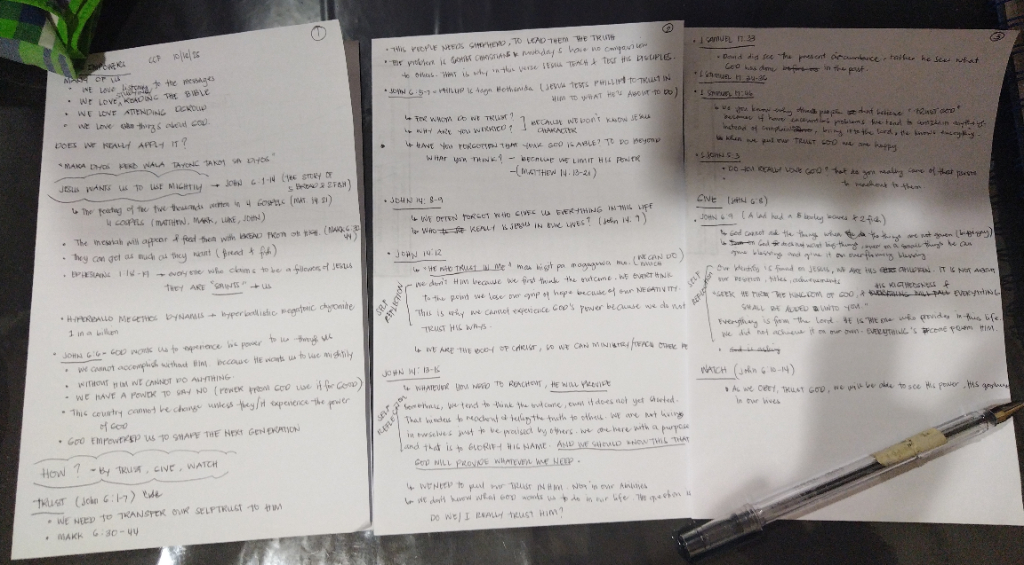 ①
EMPOWERS CCF 10/12/25
MANY OF US
• WE LOVE LISTENING to the messages
• WE LOVE READING THE BIBLE
• WE LOVE ATTENDING DGROUP
• WE LOVE things about GOD.
DOES WE REALLY APPLY IT?
"MAKA DIYOS PERO WALA TAYONG TAKOT SA DIYOS"
JESUS WANTS US TO LIVE MIGHTILY → JOHN 6:1-14 (THE STORY OF 5 BREAD & 2 FISH)
↳ The feeding of the five thousands written in 4 GOSPELS (MAT. 14:21)
4 GOSPELS (MATTHEW, MARK, LUKE, JOHN)
• The messiah will appear & feed them with BREAD FROM (MARK 6:30-44)
• They can get as much as they want (Bread & fish)
• EPHESIANS 1:18-19 → everyone who claims to be a follower of JESUS
THEY ARE "SAINTS" → US
• HYPERBALLO MEGETHOS DYNAMIS → hyperballistic megatonic dynamite
1 in a billion
• JOHN 6:6 - GOD wants us to experience his power to us through us
• We cannot accomplish without Him. Because He wants us to live mightily
• WITHOUT HIM WE CANNOT DO ANYTHING.
• WE HAVE A POWER TO SAY NO (POWER FROM GOD use it for GOOD)
• This country cannot be change unless they/it experience the power
of GOD
• GOD EMPOWERED US TO SHAPE THE NEXT GENERATION
HOW? - By TRUST, GIVE, WATCH
TRUST (John 6:1-7)
• WE NEED TO TRANSFER OUR SELF TRUST TO HIM
• MARK 6:30-44
②
• THIS PEOPLE NEEDS SHEPHERD, TO LEAD THEM THE TRUTH
• Our problem is Gentile CHRISTIANS & nowadays have no compassion
to others. THAT IS why in this verse JESUS TEACH & TEST HIS DISCIPLES.
• JOHN 6:5-7 - PHILLIP is from Bethsaida (JESUS TESTS PHILLIP TO TRUST IN
HIM TO WHAT HE'S ABOUT TO DO)
↳ FOR WHOM DO WE TRUST?
↳ WHY ARE YOU WORRIED? ] BECAUSE WE DON'T KNOW JESUS CHARACTER
↳ HAVE YOU FORGOTTEN THAT YOUR GOD IS ABLE? TO DO BEYOND
WHAT YOU THINK? - BECAUSE WE LIMIT HIS POWER
- (MATTHEW 14:13-21)
• JOHN 14:8-9
↳ WE OFTEN FORGOT WHO GIVES US EVERYTHING IN THIS LIFE
↳ WHO REALLY IS JESUS IN OUR LIVES? (John 14:9)
• JOHN 14:12
↳ "HE WHO TRUST IN ME" mas higit pa magagawa mo. (WE CAN DO MUCH)
SELF REFLECTION
We don't Him because we first think the outcome. WE OVERTHINK
To the point we lose our grip of hope because of our NEGATIVITY.
This is why we cannot experience GOD's power because we do not
TRUST HIS WAYS.
↳ WE ARE THE BODY OF CHRIST, SO WE CAN MINISTRY/
JOHN 14:13-15
↳ WHATEVER YOU NEED TO REACH OUT, HE WILL PROVIDE
SELF REFLECTION
Sometimes, we tend to think the outcome, even it does not yet started.
That hinders to of telling the truth to others. We are not living
in ourselves just to be praised by others. We are here with a purpose
and that is to GLORIFY HIS NAME. AND WE SHOULD KNOW THIS THAT
GOD WILL PROVIDE WHATEVER WE NEED.
↳ WE NEED TO put our TRUST IN Him. Not in our Abilities
↳ We don't know what GOD wants us to do in our life. The question is
DO WE/I REALLY TRUST HIM?
③
• 1 SAMUEL 17:33
- David did see the present circumstance, rather he saw what
GOD has done in the past.
• 1 SAMUEL 17:34-36
• 1 SAMUEL 17:46
↳ Do you know why people that believe "TRUST GOD"
instead of , bring it to the Lord. He knows everything.
↳ When we put our TRUST GOD we are happy
• 1 JOHN 5:3
• DO YOU REALLY LOVE GOD?
GIVE (JOHN 6:8)
• JOHN 6:9 (A lad had a 5 barley loaves & 2 fish)
↳ God cannot use the things when the things are not given
give blessings and give it an overflowing blessing
SELF REFLECTION
Our identity is found in JESUS, WE ARE HIS CHILDREN. IT IS NOT ABOUT
our , roles, achievements
"SEEK HE FIRST THE KINGDOM OF GOD, & HIS RIGHTEOUSNESS & EVERYTHING
SHALL BE ADDED UNTO YOU."
Everything is from the Lord. HE IS THE ONE who provides in this life.
We did not achieve it on our own. EVERYTHING'S COME FROM HIM.
WATCH (John 6:10-14)
• AS WE OBEY, TRUST GOD, we will be able to see His power, His
in our lives